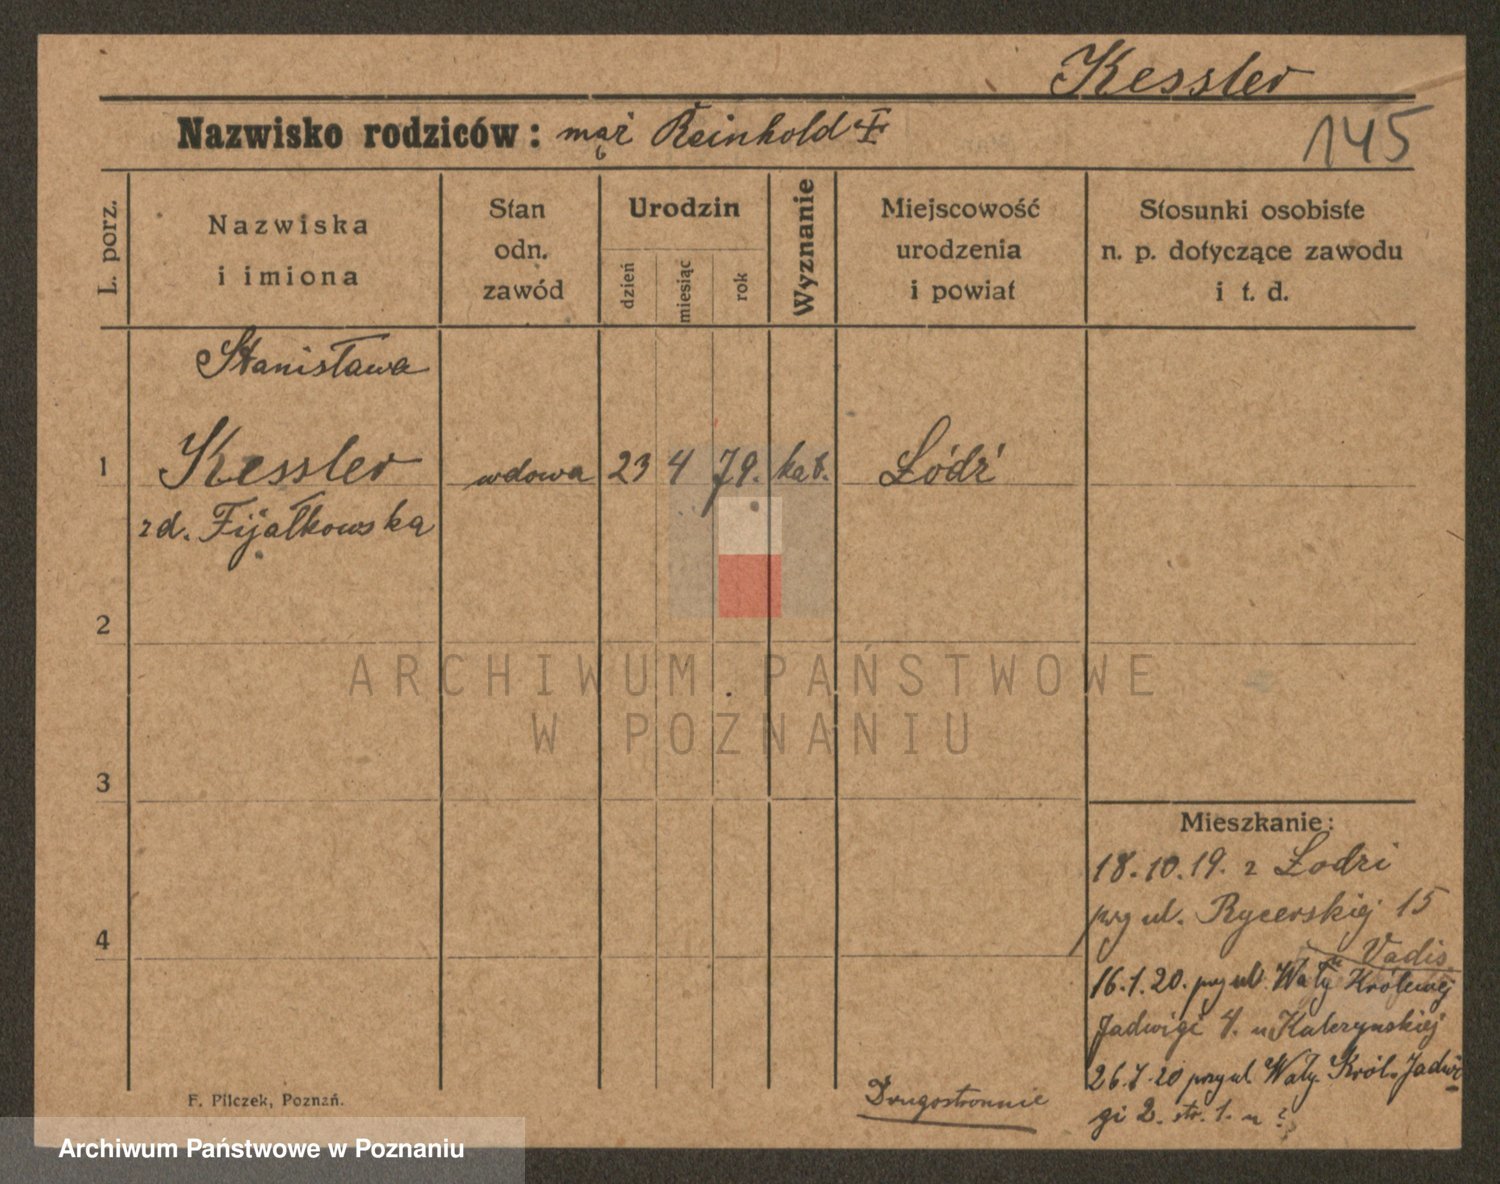 Kessler
Nazwisko rodziców: mąż Reinhold
145
L. porz.
Nazwiska
i imiona
Stan
odn.
zawód
Urodzin
dzień
miesiąc
rok
Wyznanie
Miejscowość
urodzenia
i powiat
Stosunki osobiste
n. p. dotyczące zawodu
i t. d.
Stanisława
1 Kessler wdowa 23 4 79. kat. Łódź
zd. Fijałkowska
2
ARCHIWUM PAŃSTWOWE
W POZNANIU
3
4
Mieszkanie:
18.10.19. z Łodzi
przy ul. Rycerskiej 15
u Vadis
16.1.20. przy ul. Wały Królowej
Jadwigi 4. u Katarzynskiej
26.7.20 przy ul Wały Król. Jadwi
gi 2. str. 1. u ?
Drugostronnie
F. Pilczek, Poznań.
Archiwum Państwowe w Poznaniu